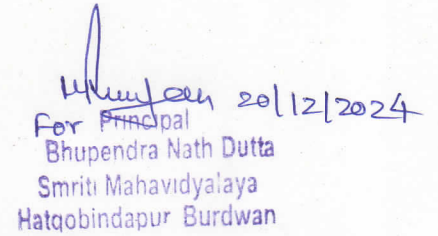 20/12/2024
For Principal
Bhupendra Nath Dutta
Smriti Mahavidyalaya
Hatgobindapur Burdwan